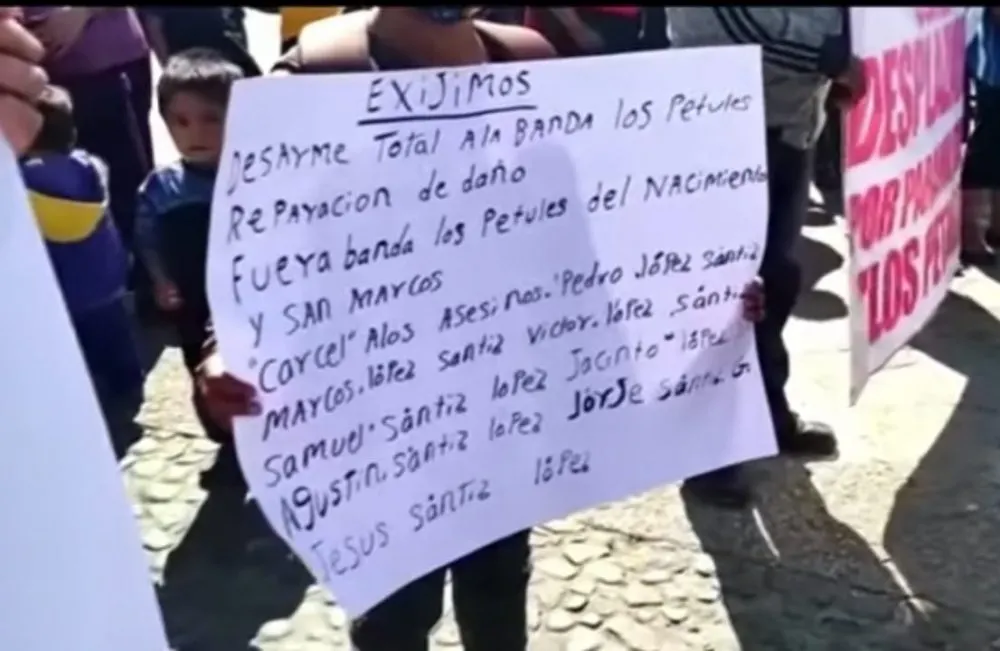 EXIJIMOS
DESARME TOTAL A LA BANDA los Petules
RePARACION de daño
FUERA banda los PETULES del NACIMIENTO
Y SAN MARCOS
"CARCEL" A los ASESINOS. "PEDRO LÓPEZ SÁNTIZ
MARCOS. LÓPEZ SANTIZ VICTOR. LÓPEZ SÁNTIZ
SAMUEL" SÁNTIZ LOPEZ JACINTO" LÓPEZ
AGUSTIN. SÁNTIZ LÓPEZ JORJE SÁNTIZ G.
JESUS SÁNTIZ LÓPEZ
DESPLAZA
POR
"LOS PET